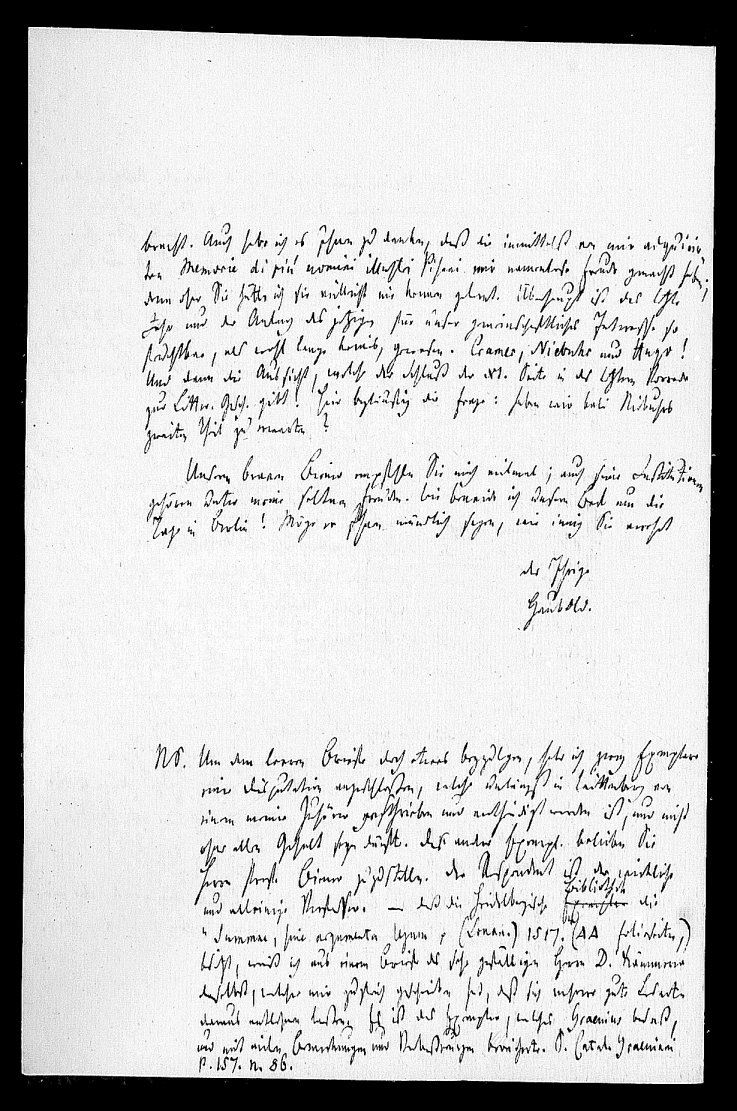 bracht. Auch habe ich es Ihnen zu danken, daß die inmittelst von mir acquirir-
ten Memorie di più uomini illustri Pisani mir namenlose Freude gemacht haben,
denn ohne Sie hätte ich sie vielleicht nie kennen gelernt. Überhaupt ist das letzte
Jahr und der Anfang des jetzigen für unser gemeinschaftliches Interesse so
fruchtbar, als wohl lange keines, gewesen. Cramer, Niebuhr und Hugo!
Und dann die Aussicht, welche der Schluß der Seite in der letzten Vorrede
zur Litter. Gesch. gibt! Hier beyläufig die Frage: haben wir bald Niebuhrs
zweiten Theil zu erwarten?
Unserm braven Biener empfehlen Sie mich vielmal; auch seine Institutionen
gehören unter meine seltnen Freuden. Wie beneide ich unsern Beck um die
Tage in Berlin! Möge er Ihnen mündlich sagen, wie innig Sie verehrt
der Ihrige
Haubold.
NS. Um dem leeren Briefe doch etwas beyzufügen, habe ich zwey Exemplare
einer Disputation angeschlossen, welche unlängst in Wittenberg von
einem meiner Zuhörer geschrieben und vertheidigt worden ist, und nicht
ohne allen Gehalt seyn dürfte. Das andre Exempl. belieben Sie
Herrn Prof. Biener zuzustellen. Der Respondent ist der wirkliche
und alleinige Verfasser. — daß die Heidelbergische Bibliothek die
"Summae, sive argumenta legum" (Lovan.) 1517. (AA folioseiten,)
besitzt, weiß ich aus einem Briefe des sehr gefälligen Herrn D.
daselbst, welcher mir zugleich geschrieben hat, daß sich mehrere gute Lesarten
daraus entlehnen lassen. Es ist das Exemplar, welches Graevius besaß,
und mit vielen Bemerkungen und Verbesserungen bereicherte. S. Catal. Graeviani
p. 157. n. 86.